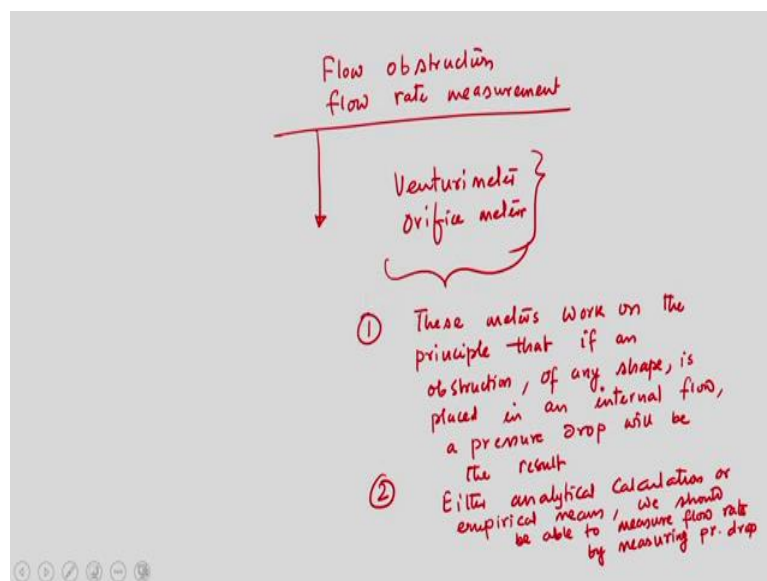 Flow obstruction
flow rate measurement
Venturimeter
Orifice meter
① These meters work on the
principle that if an
obstruction, of any shape, is
placed in an internal flow,
a pressure drop will be
the result
② Either analytical calculation or
empirical means, we should
be able to measure flow rate
by measuring pr. drop